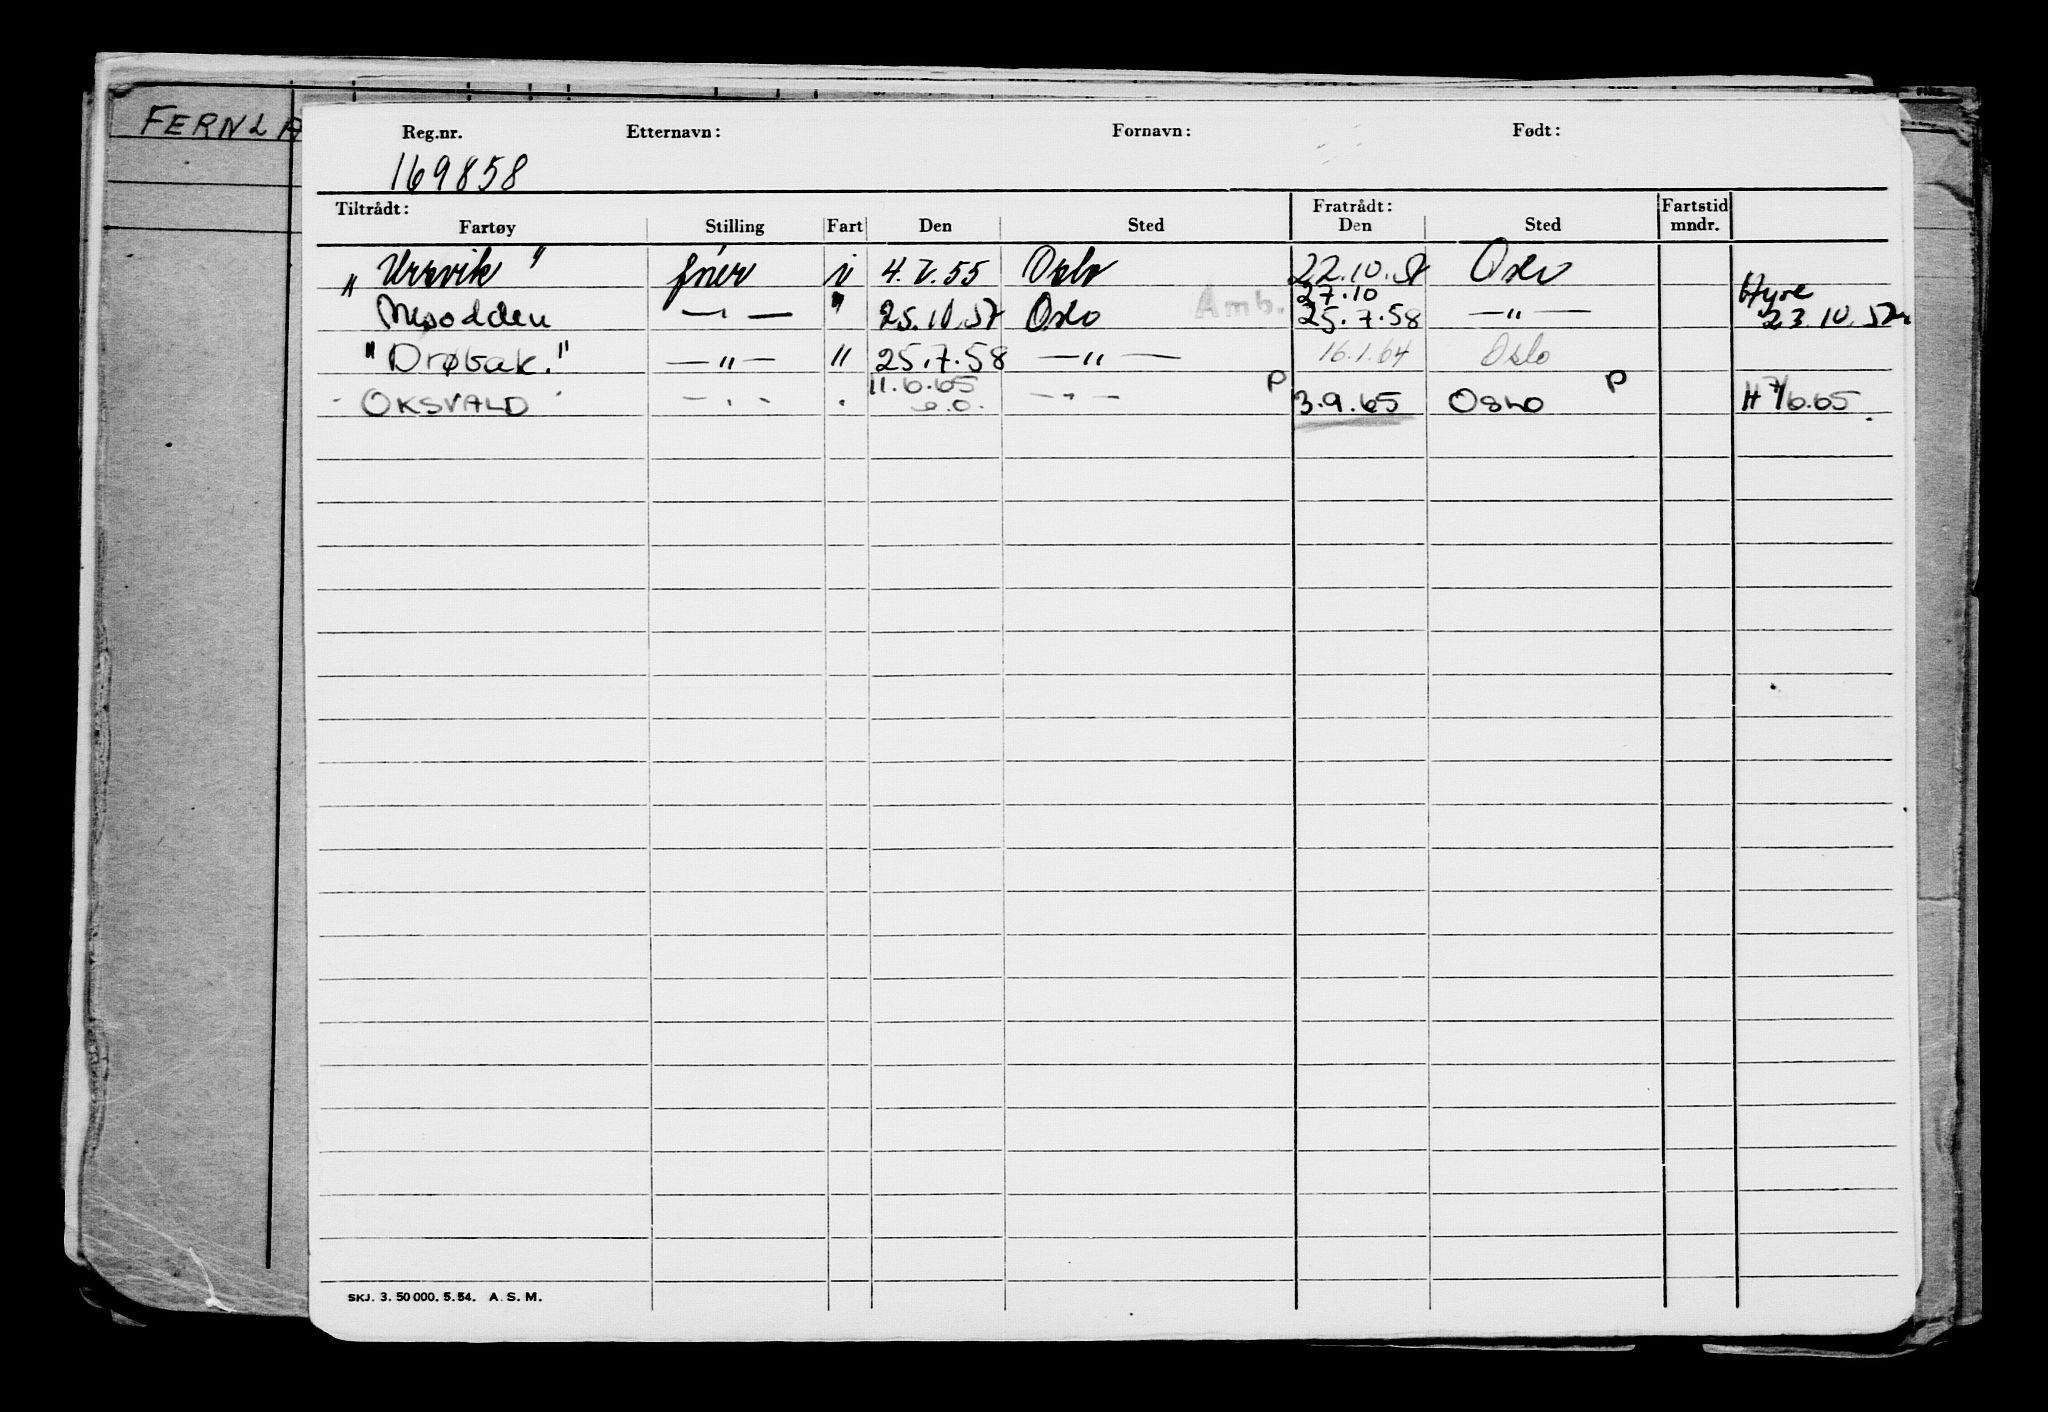 FERNLA
Reg.nr. Etternavn: Fornavn: Født:
169858
Tiltrådt: Fratrådt: Fartstid
Fartøy Stilling Fart Den Sted Den Sted mndr.
" " i 4.V.55 Oslo 22.10.57 Oslo
27.10 Hyre
Nesodden — " — " 25.10.57 Oslo Amb. 25.7.58 — " — 23.10.57
"Drøbak." — " — " 25.7.58 — " — 16.1.64 Oslo
11.6.65 P P
" OKSVALD " — " — " — " — 3.9.65 OSLO H 7/6.65.
SKJ. 3. 50 000. 5. 54. A. S. M.